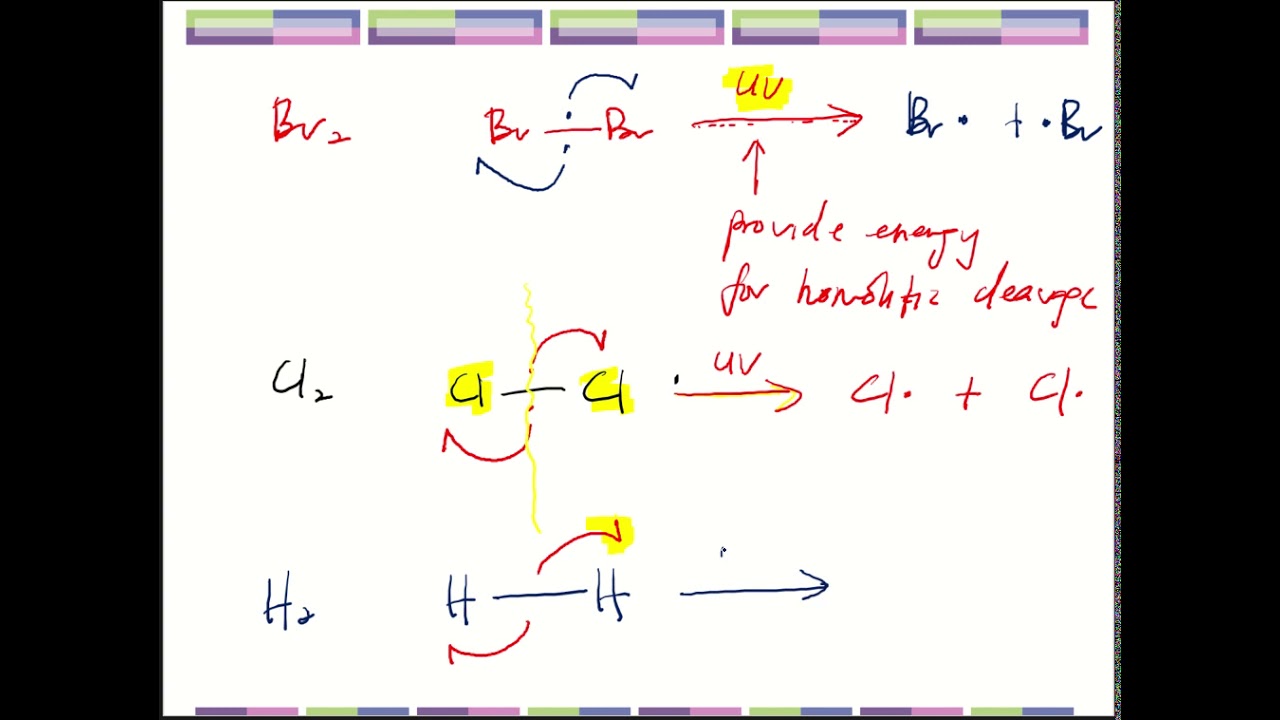 UV
Br₂ Br—Br → Br· + ·Br
provide energy
for homolitic cleavage
UV
Cl₂ Cl—Cl → Cl· + Cl·
H₂ H—H →